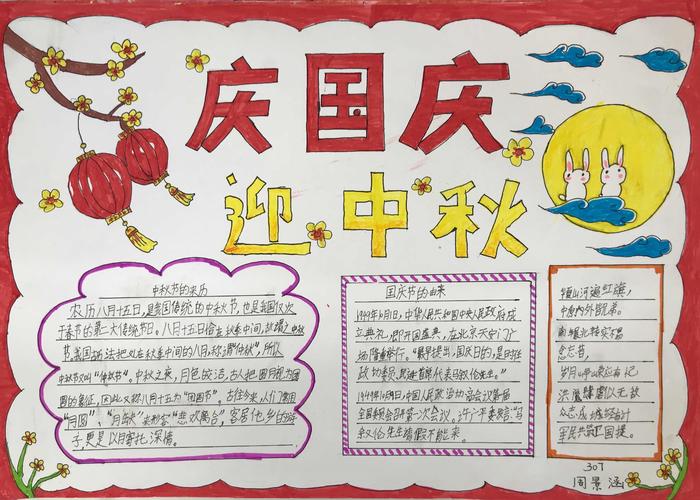 庆国庆
迎中秋
中秋节的来历
农历八月十五日,是我国传统的中秋节,也是我国仅次
于春节的第二大传统节日。八月十五日恰在秋季中间,故谓之中秋
节,我国历法把处在秋季中间的八月,称谓“仲秋”,所以
中秋节又叫“仲秋节”。中秋之夜,月色皎洁,古人把圆月视为团
圆的象征,因此又称八月十五为“团圆节”。古往今来,人们常用
“月圆”、“月缺”来形容“悲欢离合”,客居他乡的游
子,更是以月寄托深情。
国庆节的由来
1949年10月1日,中华人民共和国中央人民政府成
立典礼,即开国盛典,在北京天安门广
场隆重举行。“最早提出,国庆日的,是
政协委员,
1949年10月9日,中国人民政治协商会议第一届
全国委员会召开第一次会议。许广平委员发言:“马
叙伦先生请假不能来。
河遍红旗,
岁月
众志成城
军民共筑
307
周景涵